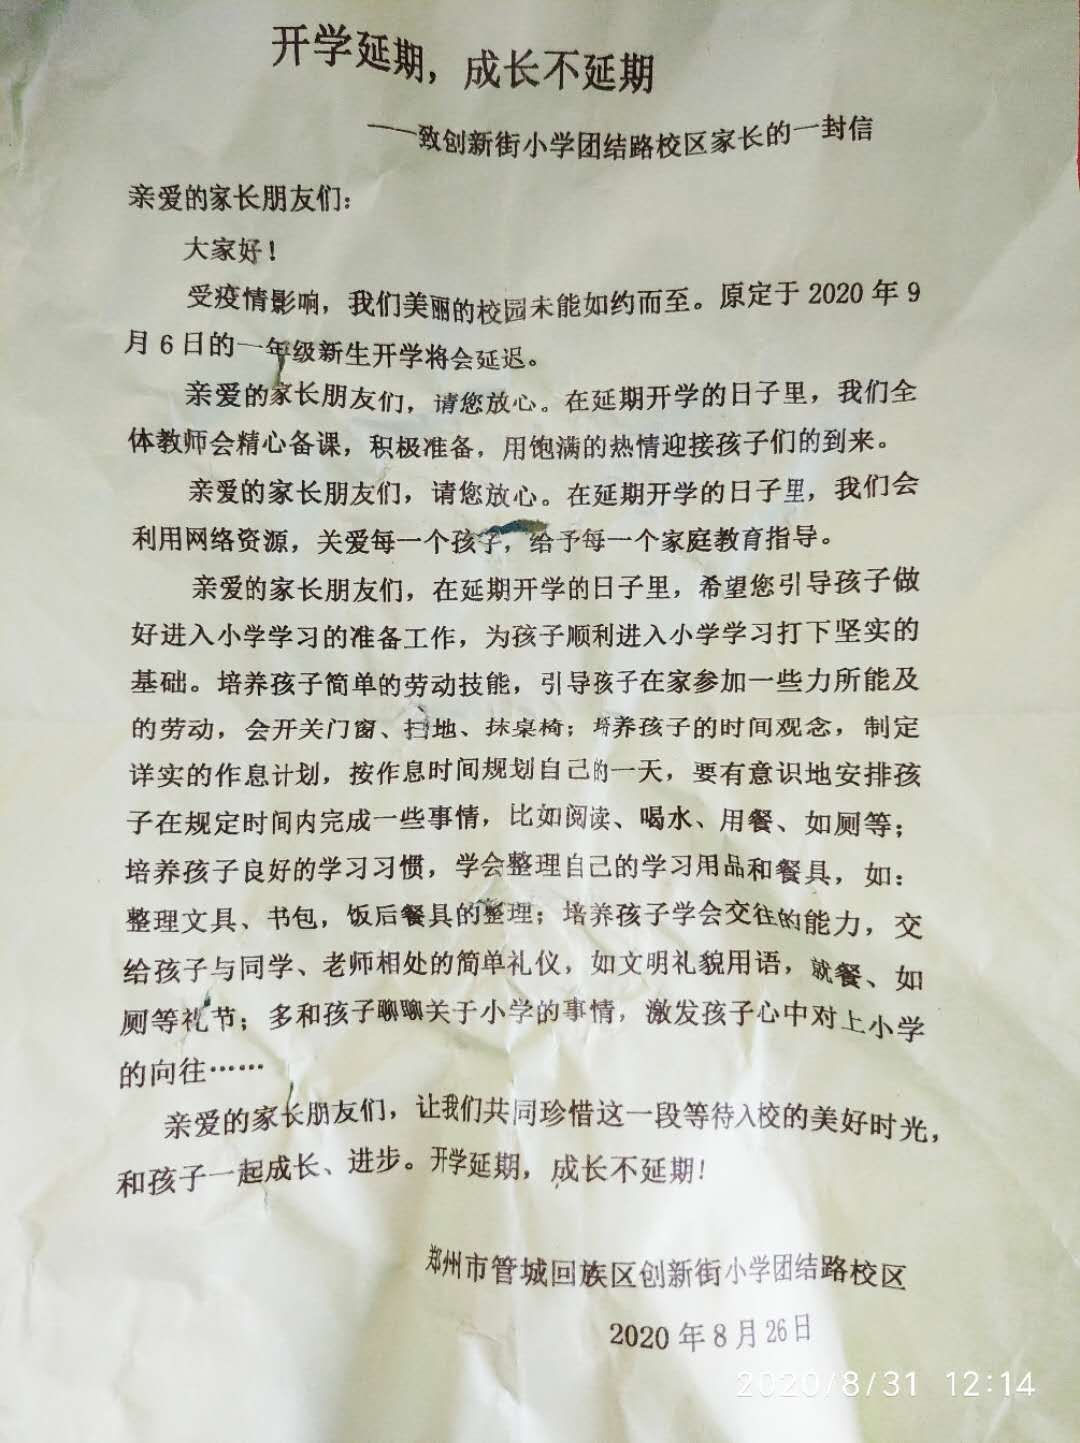 开学延期，成长不延期
——致创新街小学团结路校区家长的一封信
亲爱的家长朋友们：
大家好！
受疫情影响，我们美丽的校园未能如约而至。原定于 2020 年 9
月 6 日的一年级新生开学将会延迟。
亲爱的家长朋友们，请您放心。在延期开学的日子里，我们全
体教师会精心备课，积极准备，用饱满的热情迎接孩子们的到来。
亲爱的家长朋友们，请您放心。在延期开学的日子里，我们会
利用网络资源，关爱每一个孩子，给予每一个家庭教育指导。
亲爱的家长朋友们，在延期开学的日子里，希望您引导孩子做
好进入小学学习的准备工作，为孩子顺利进入小学学习打下坚实的
基础。培养孩子简单的劳动技能，引导孩子在家参加一些力所能及
的劳动，会开关门窗、扫地、抹桌椅；培养孩子的时间观念，制定
详实的作息计划，按作息时间规划自己的一天，要有意识地安排孩
子在规定时间内完成一些事情，比如阅读、喝水、用餐、如厕等；
培养孩子良好的学习习惯，学会整理自己的学习用品和餐具，如：
整理文具、书包，饭后餐具的整理；培养孩子学会交往的能力，交
给孩子与同学、老师相处的简单礼仪，如文明礼貌用语，就餐、如
厕等礼节；多和孩子聊聊关于小学的事情，激发孩子心中对上小学
的向往……
亲爱的家长朋友们，让我们共同珍惜这一段等待入校的美好时光，
和孩子一起成长、进步。开学延期，成长不延期！
郑州市管城回族区创新街小学团结路校区
2020 年 8 月 26 日
2020/8/31 12:14